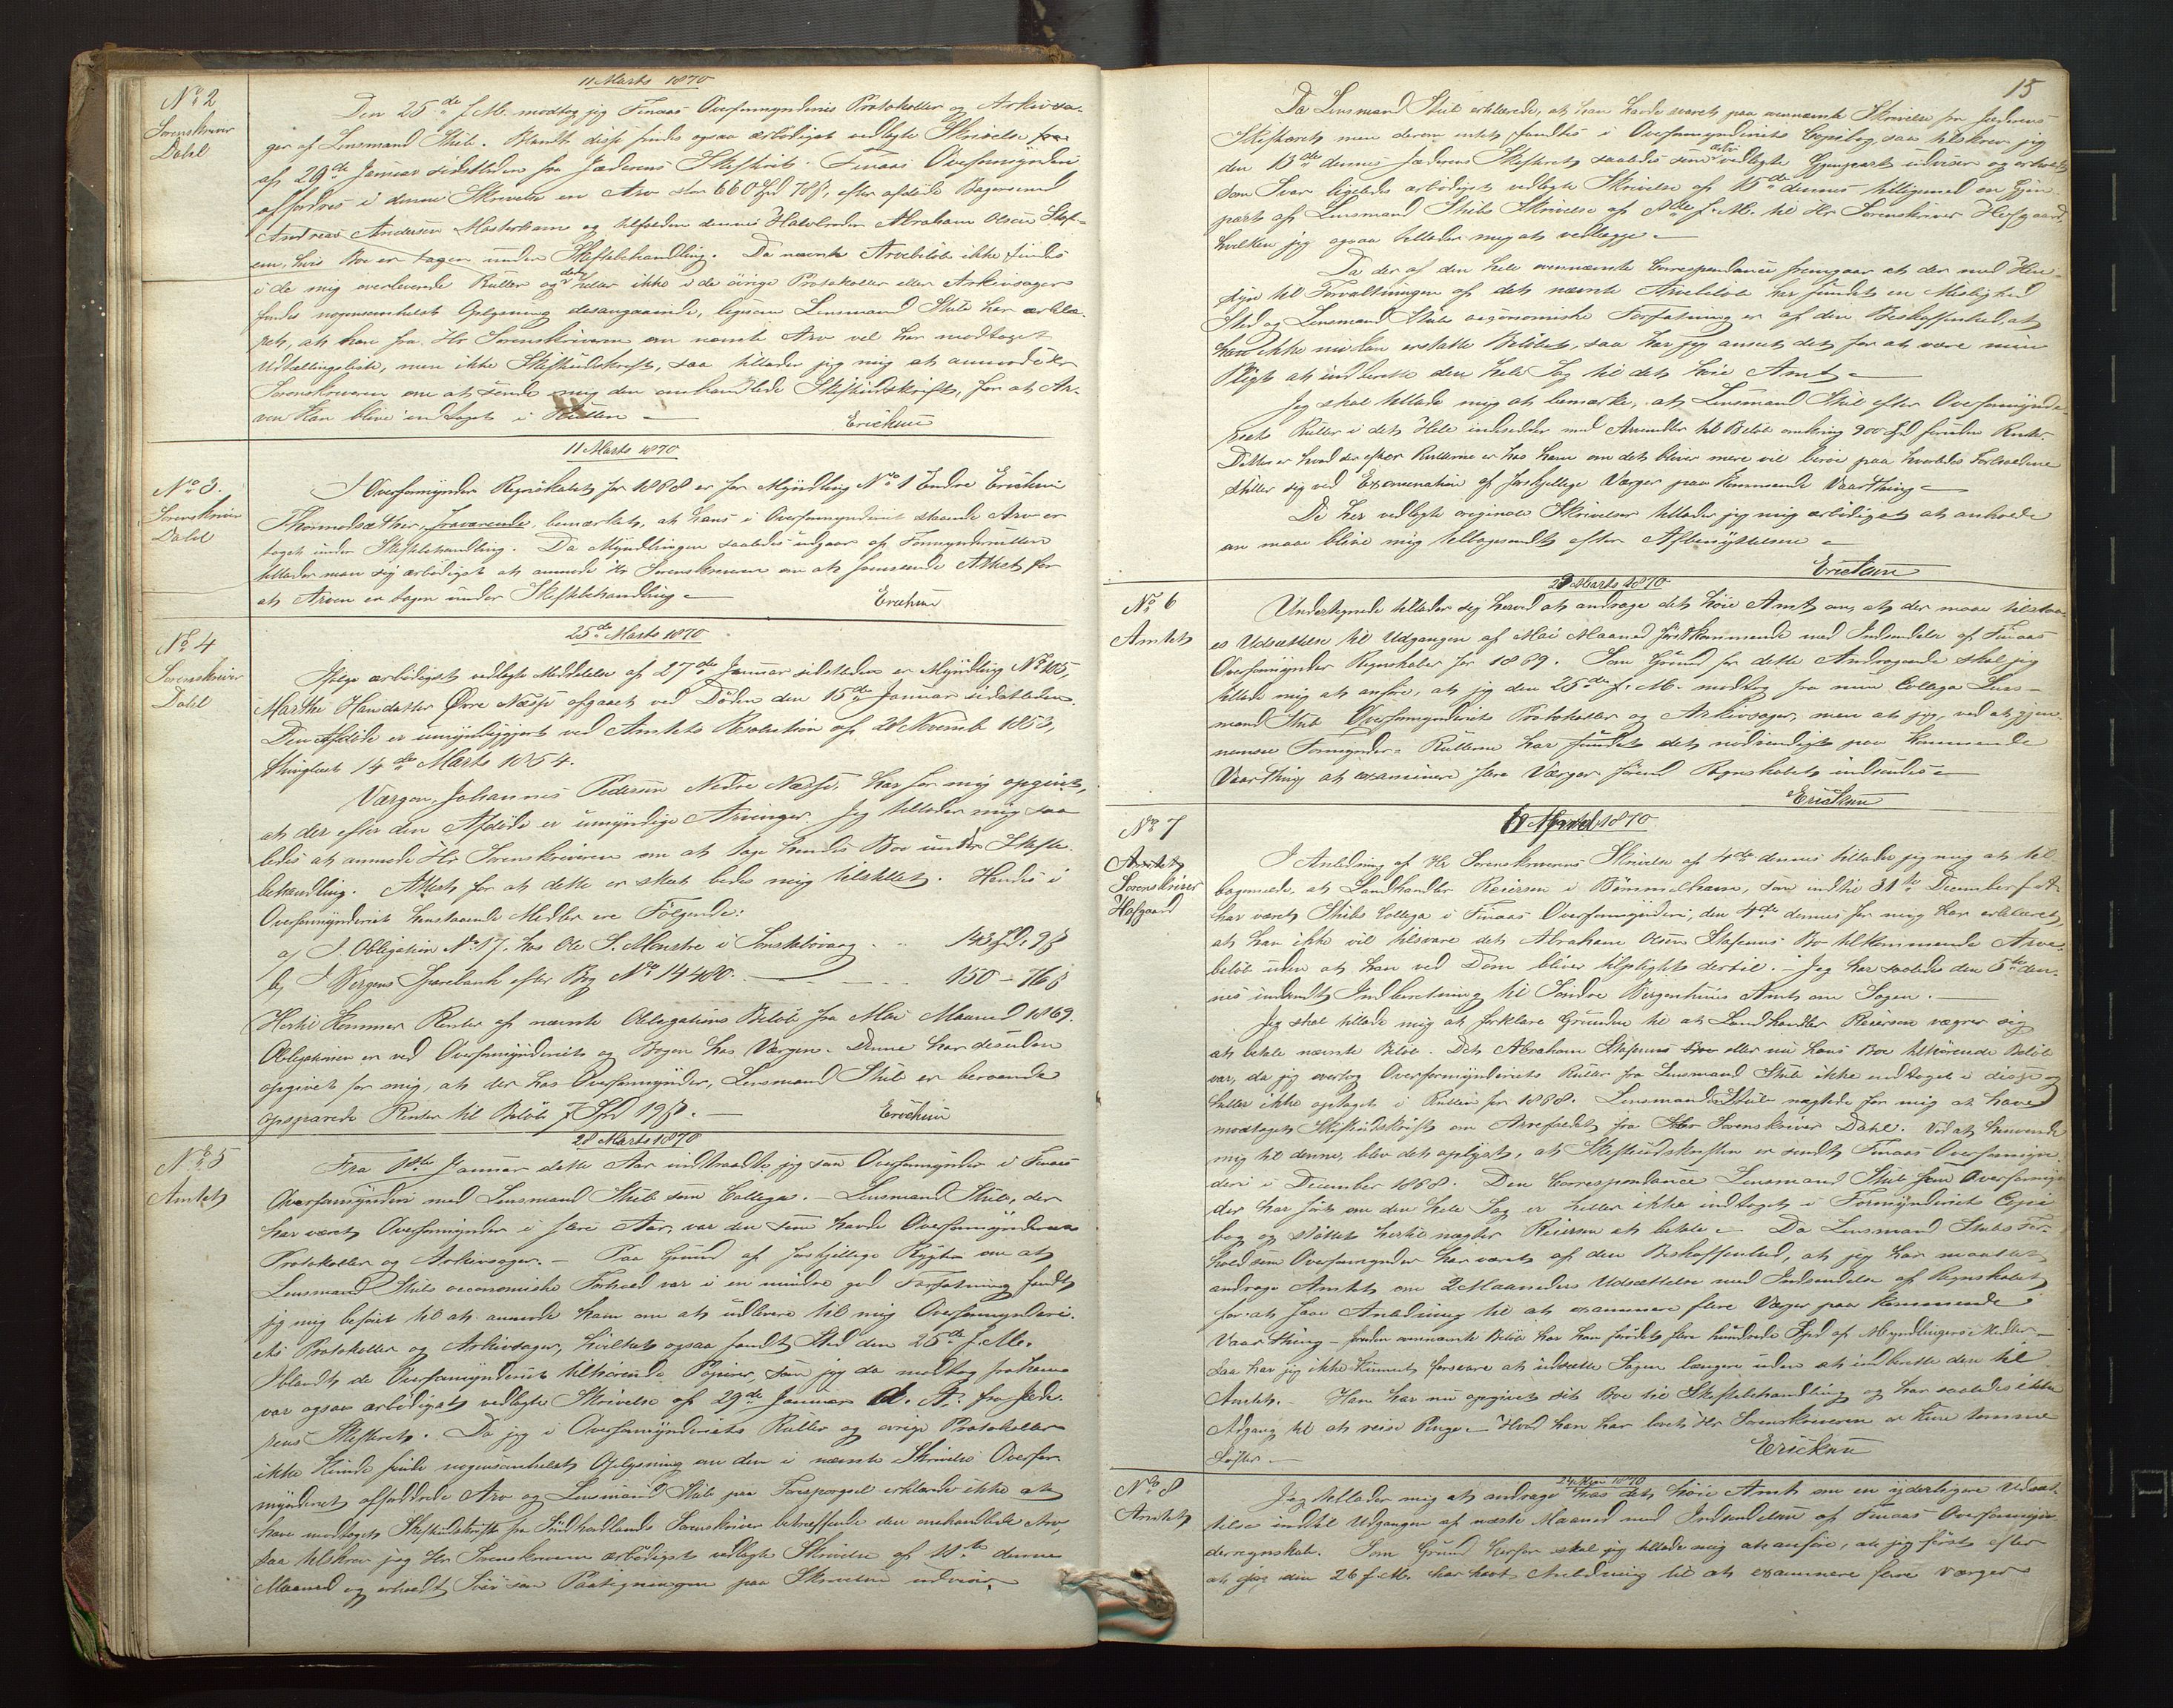 11 Marts 1870
No 2
Sorenskriver
Dahl
Den 25de f. M. modtog jeg Finaas Overformynderies Protokoller og Arkivsa-
ger af Lensmand Stub. Blandt disse findes ogsaa ærbødigst vedlagte Skrivelse fra
af 29de Januar sidstleden fra Jæderens Skifteret. Finaas Overformynderi
affordres i denne Skrivelse en Arv stor 660 Spd 78 ß. efter afdøde Bagersvend
Andreas Andersen Mosterhavn og tilfalden dennes Halvbroder Abraham Olsen Staf-
sen, hvis Bo er tagen under Skiftebehandling. Da nævnte Arvebeløb ikke findes
i de mig overleverede Ruller og der heller ikke i de øvrige Protokoller eller Arkivsager
findes nogensomhelst Oplysning desangaaende, ligesom Lensmand Stub har erklæ-
ret, at han fra Hr Sorenskriveren om nævnte Arv vel har modtaget
Udtællingsliste, men ikke Skifteudskrift, saa tillader jeg mig at anmode Hr
Sorenskriveren om at sende mig den omhandlede Skifteudskrift, for at Ar-
ven kan blive indtaget i Rullen —
Ericksen
11 Marts 1870
No 3.
Sorenskriver
Dahl
I Overformynder Regnskabet for 1868 er for Myndling No 1 Endre Ericksen
Thormodsæther, fraværende, bemærket, at hans i Overformynderiet staaende Arv er
taget under Skiftebehandling. Da Myndlingen saaledes udgaar af Formynderrullen
tillader man sig ærbødigst at anmode Hr Sorenskriveren om at fremsende Attest for
at Arven er tagen under Skiftebehandling —
Ericksen
25de Marts 1870
No 4
Sorenskriver
Dahl
Ifølge ærbødigst vedlagte Meddelelse af 27de Januar sidstleden er Myndling No 105,
Marthe Hansdatter Øvre Næsse afgaaet ved Døden den 15de Januar sidstleden.
Den Afdøde er umyndiggjort ved Amtets Resolution af 21 Novemb 1853,
thinglæst 14de Marts 1854.
Værgen, Johannes Pedersen Nedre Næsse, har for mig opgivet,
at der efter den Afdøde er umyndige Arvinger. Jeg tillader mig saa
ledes at anmode Hr Sorenskriveren om at tage hendes Bo under Skifte-
behandling. Attest for at dette er skeet bedes mig tilstillet. Hendes i
Overformynderiet henstaaende Midler ere Følgende:
a, I Obligation No 17. hos Ole S. Monstre i 143 Spd. 9 ß
b, I Bergens Sparebank efter Bog No 14480. — 150 - 116 ß
Hertil kommer Renter af nævnte Obligations Beløb fra Mai Maaned 1869.
Obligationen er ved Overformynderiet og Bogen hos Værgen. Denne har desuden
opgivet for mig, at der hos Overformynder, Lensmand Stub er beroende
opsparede Renter til Beløb 7 Spd 19 ß. —
Ericksen
28 Marts 1870
No 5
Amtet
Fra 1ste Januar dette Aar indtraadte jeg som Overformynder i Finaas
Overformynderi med Lensmand Stub som Collega. — Lensmand Stub, der
har været Overformynder i flere Aar, var den som havde Overformynderiets
Protokoller og Arkivsager. — Paa Grund af forskjellige Rygter om at
Lensmand Stubs oeconomiske Forhold var i en mindre god Forfatning fandt
jeg mig beføiet til at anmode ham om at udlevere til mig Overformynderi-
ets Protokoller og Arkivsager, hvilket ogsaa fandt Sted den 25de f. M.
Iblandt de Overformynderiet tilhørende Papirer, som jeg da modtog fra ham
var ogsaa ærbødigst vedlagte Skrivelse af 29de Januar d. A. fra Jæde-
rens Skifteret. Da jeg i Overformynderiets Ruller og øvrige Protokoller
ikke kunde finde nogensomhelst Oplysning om den i nævnte Skrivelse Overfor-
mynderiet affordrede Arv og Lensmand Stub paa Forespørgsel erklærede ikke at
have modtaget Skifteudskrift fra Søndhordlands Sorenskriver betræffende den omhandlede Arv,
saa tilskrev jeg Hr Sorenskriveren ærbødigst vedlagte Skrivelse af 11te denne
Maaned og erholdt Svar som Paategningen paa Skrivelsen udviser.
15
Da Lensmand Stub erklærede, at han havde svaret paa ovennævnte Skrivelse fra Jæderens
Skifteret men derom intet fandtes i Overformynderiets Copibog saa tilskrev jeg
den 13de dennes Jæderens Skifteret saaledes som vedlagte Gjenpart udviser og erholdt
som Svar ligeledes ærbødigst vedlagte Skrivelse af 15de dennes tilligemed en Gjen-
part af Lensmand Stubs Skrivelse af f. M. til Hr Sorenskriver Hofgaard,
hvilken jeg ogsaa tillader mig at vedlægge. —
Da der af den hele ovennævnte Correspondance fremgaar at der med Hen-
syn til Forvaltningen af det nævnte Arvebeløb har fundet en Mislighed
Sted og Lensmand Stubs oeconomiske Forfatning er af den Beskaffenhed, at
han ikke nu kan erstatte Beløbet, saa har jeg anseet det for at være min
Pligt at indberette den hele Sag til det høie Amt —
Jeg skal tillade mig at bemærke, at Lensmand Stub efter Overformynde-
riets Ruller i det Hele indsidder med Annmidler til Beløb omkring 900 Spd foruden Renter.
Dette er hvad der efter Rullerne er hos ham om det bliver mere vil beroe paa hvorledes Forholdene
stiller sig ved Examination af forskjellige Værger paa kommende Vaarthing —
De her vedlagte originale Skrivelser tillader jeg mig ærbødigst at anholde
om maa blive mig tilbagesendt efter Afbenyttelsen —
Ericksen
29 Marts 1870
No 6
Amtet
Undertegnede tillader sig herved at andrage det høie Amt om, at der maa tilstaa-
es Udsættelse til Udgangen af Mai Maaned førstkommende med Indsendelse af Finaas
Overformynder Regnskaber for 1869. Som Grund for dette Andragende skal jeg
tillade mig at anføre, at jeg den 25de f. M. modtog fra min Collega Lens-
mand Stub Overformynderiets Protokoller og Arkivsager, men at jeg, ved at gjen-
nemsee Formynder-Rullerne har fundet det nødvendigt paa kommende
Vaarthing at examinere flere Værger førend Regnskabet indsendes —
Ericksen
6 April 1870
No 7
Amtet
Sorenskriver
Hofgaard
I Anledning af Hr Sorenskriverens Skrivelse af 4de dennes tillader jeg mig at til-
bagemelde, at Landhandler Reiersen i Bømmelhavn, som indtil 31te December f. A.
har været Stubs Collega i Finaas Overformynderi, den 4de dennes for mig har erklæret,
at han ikke vil tilsvare det Abraham Olsen Stafsens Bo tilkommende Arve-
beløb uden at han ved Dom bliver tilpligtet dertil. — Jeg har saaledes den 5te den-
nes indsendt Indberetning til Søndre Bergenhuus Amt om Sagen. —
Jeg skal tillade mig at forklare Grunden til at Landhandler Reiersen vægrer sig
at betale nævnte Beløb. Det Abraham Stafsens Boe eller nu hans Boe tilhørende Beløb
var, da jeg overtog Overformynderiets Ruller fra Lensmand Stub ikke indtaget i disse og
heller ikke optaget i Rullen for 1868. Lensmand Stub nægtede for mig at have
modtaget Skifteudskrift om Arvefaldet fra Sorenskriver Dahl. Ved at henvende
mig til denne, blev det oplyst, at Skifteudskriften er sendt Finaas Overformyn-
deri i December 1868. Den Correspondance Lensmand Stub som Overformyn-
der har ført om den hele Sag er heller ikke indtaget i Formynderiets Copi-
bog og støttet hertil nægter Reiersen at betale. — Da Lensmand Stubs For-
hold som Overformynder har været af den Beskaffenhed, at jeg har maattet
andrage Amtet om 2 Maaneders Udsættelse med Indsendelse af Regnskabet
for at faae Anledning til at examinere flere Værger paa kommende
Vaarthing — foruden ovennævnte Beløb har han flere hundrede Spd af Myndlingers Midler —
saa har jeg ikke kunnet forsvare at udsætte Sagen længere uden at indberette den til
Amtet. — Han har nu opgivet sit Boe til Skiftebehandling og har saaledes ikke
Adgang til at reise Penge. — Hvad han har lovet Hr Sorenskriveren er kun tomme
Løfter. —
Ericksen
24 Mai 1870
No 8
Amtet
Jeg tillader mig at andrage hos det høie Amt om en yderligere Udsæt-
telse indtil Udgangen af næste Maaned med Indsendelsen af Finaas Overformyn-
derregnskab. Som Grund herfor skal jeg tillade mig at anføre, at jeg først efter
at jeg den 26 f. M. har havt Anledning til at examinere flere Værger